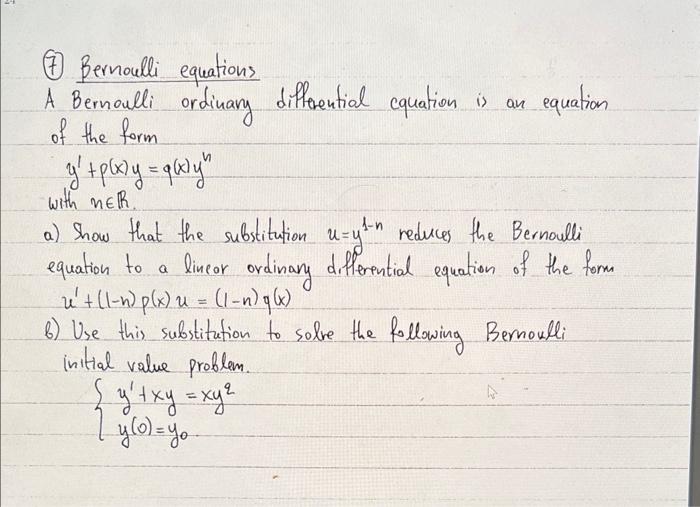 ⑦ Bernoulli equations
A Bernoulli ordinary differential equation is an equation
of the form
y' + p(x)y = q(x)yⁿ
with n∈ℝ.
a) Show that the substitution u=y¹⁻ⁿ reduces the Bernoulli
equation to a linear ordinary differential equation of the form
u' + (1-n) p(x) u = (1-n) q(x)
b) Use this substitution to solve the following Bernoulli
initial value problem.
{ y' + xy = xy²
y(0) = y₀